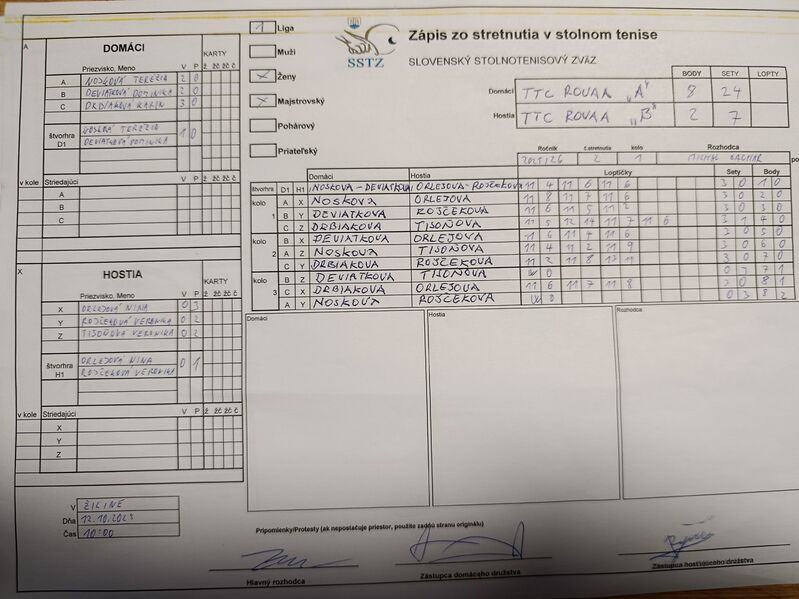 1 Liga
Muži
X Ženy
X Majstrovský
Pohárový
Priateľský
SSTZ
Zápis zo stretnutia v stolnom tenise
SLOVENSKÝ STOLNOTENISOVÝ ZVÄZ
BODY SETY LOPTY
Domáci TTC ROVAA „A" 8 24
Hostia TTC ROVAA „B" 2 7
Ročník č.stretnutia kolo Rozhodca
2025/26 2 1
A
DOMÁCI
KARTY
Priezvisko, Meno V P ž žč žč č
A NOSKOVÁ TEREZIA 2 0
B DEVIATKOVÁ DOMINIKA 2 0
C DRBIAKOVA KARIN 3 0
štvorhra D1
NOSKOVÁ TEREZIA 1 0
DEVIATKOVÁ DOMINIKA
v kole Striedajúci V P ž žč žč č
A
B
C
X
HOSTIA
KARTY
Priezvisko, Meno V P ž žč žč č
X ORLEJOVÁ NINA 0 3
Y ROJČEKOVÁ VERONIKA 0 2
Z TISOŇOVÁ VERONIKA 0 2
štvorhra H1
ORLEJOVÁ NINA 0 1
ROJČEKOVÁ VERONIKA
v kole Striedajúci V P ž žč žč č
X
Y
Z
Domáci Hostia Loptičky Sety Body
štvorhra D1 H1 NOSKOVA - DEVIATKOVA ORLEJOVA - ROJČEKOVA 11 4 11 6 11 6 3 0 1 0
kolo 1
A X NOSKOVA ORLEJOVA 3 0 2 0
B Y DEVIATKOVA ROJČEKOVA 3 0 3 0
C Z DRBIAKOVA TISOŇOVA 11 5 12 14 11 7 11 6 3 1 4 0
kolo 2
B X DEVIATKOVA ORLEJOVA 11 6 11 4 11 6 3 0 5 0
A Z NOSKOVA TISOŇOVA 11 4 11 2 11 9 3 0 6 0
C Y DRBIAKOVA ROJČEKOVA 11 2 11 8 3 0 7 0
kolo 3
B Z DEVIATKOVA TISOŇOVA 0 7 1
C X DRBIAKOVA ORLEJOVA 11 6 11 7 11 8 3 0 8 1
A Y NOSKOVA ROJČEKOVA 0 3 8 2
Domáci
Hostia
Rozhodca
V ŽILINE
Dňa 12.10.2025
Čas 10:00
Pripomienky/Protesty (ak nepostačuje priestor, použite zadnú stranu originálu)
Hlavný rozhodca
Zástupca domáceho družstva
Zástupca hosťujúceho družstva